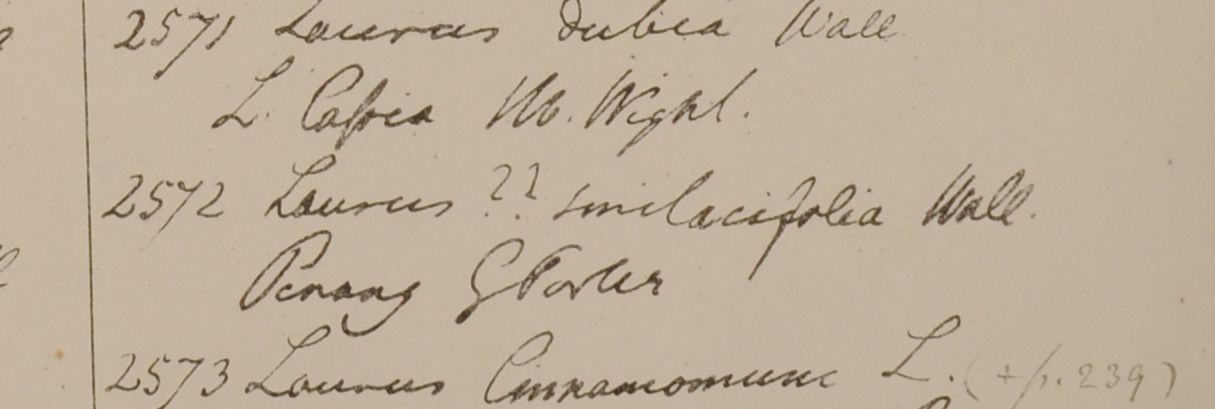 2571 Laurus dubia Wall
L. Cassia Hb. Wight.
2572 Laurus ?? smilacifolia Wall.
Penang G Porter
2573 Laurus Cinnamomum L. (+ p. 239)